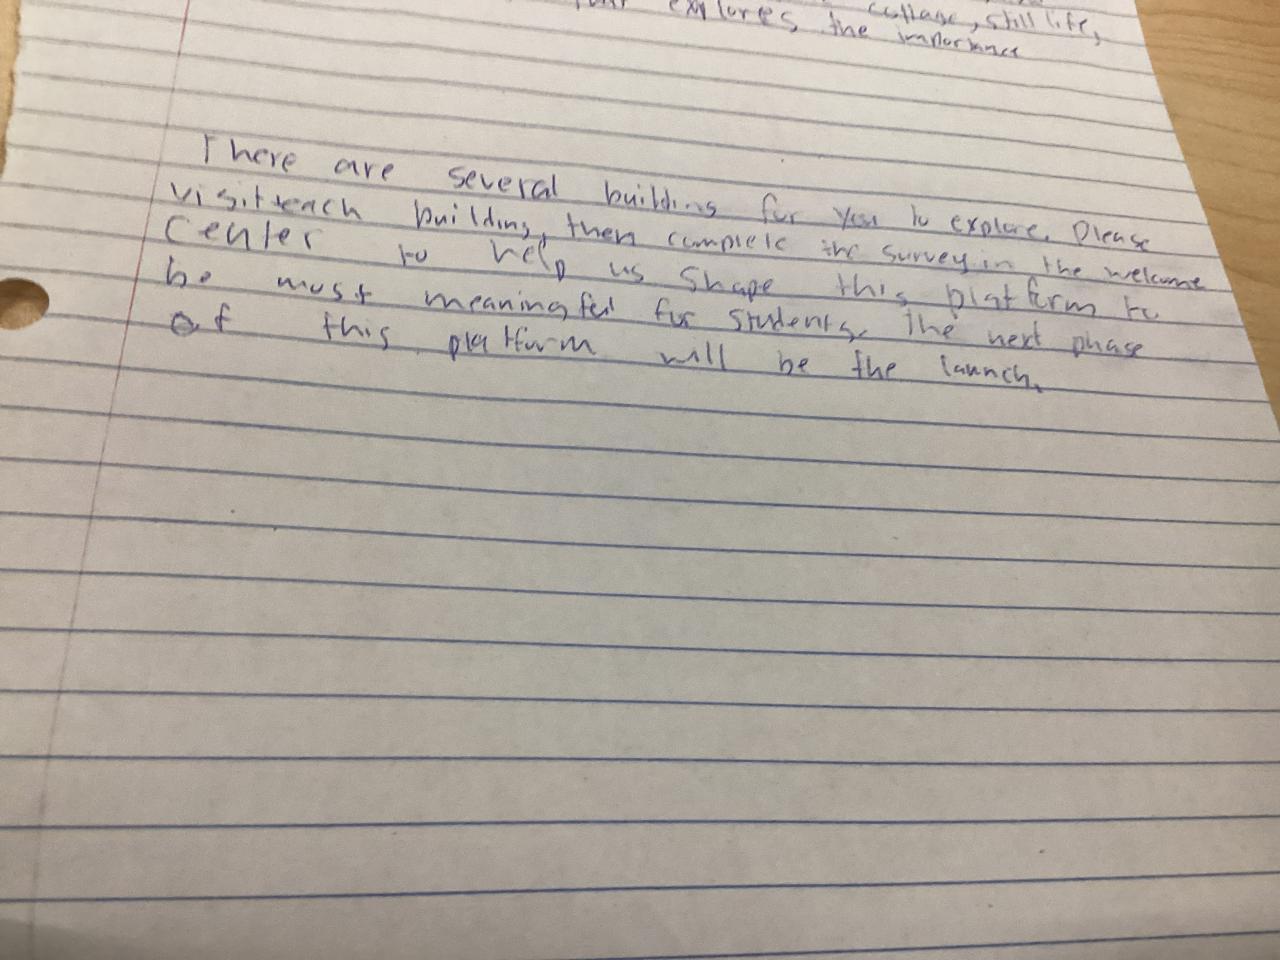 explores the importance collage, still life,
There are several building for you to explore. Please
visit each building, then complete the survey in the welcome
Center to help us shape this platform to
be most meaningful for students. The next phase
of this platform will be the launch.